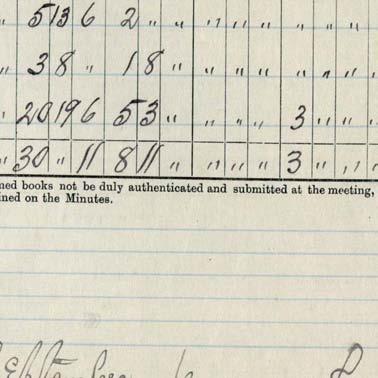 " 5 13 6 2 " " " " " " " "
" 3 8 " 1 8 " " " " " " " "
" 20 19 6 5 3 " " " " 3 " " "
" 30 " 11 8 11 " " " " 3 " " "
med books not be duly authenticated and submitted at the meeting,
ined on the Minutes.